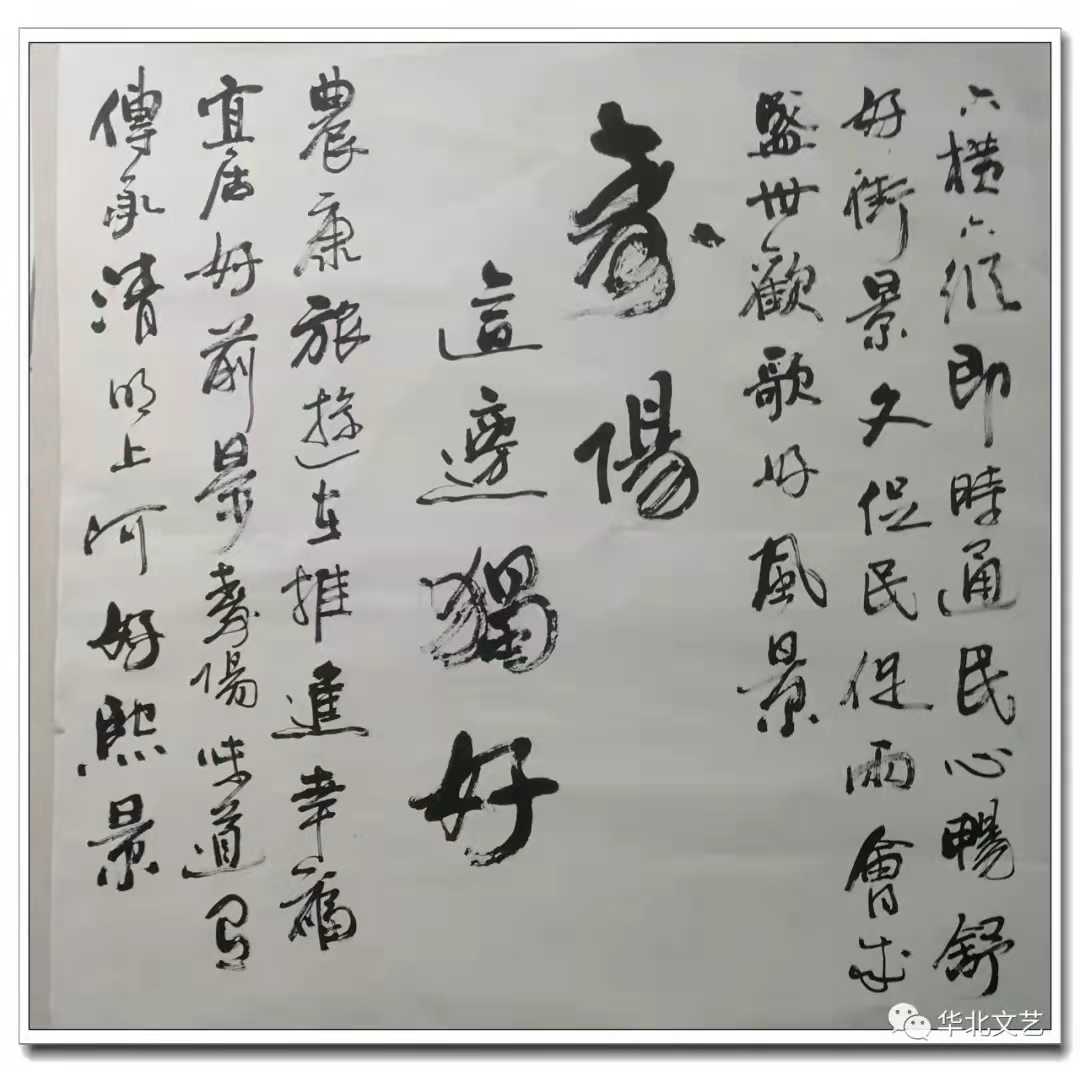 六横六纵即時通民心暢舒
好街景文促民促兩會成
盛世歡歌好風景
壽陽
這邊獨好
農康旅游在推進幸福
宜居好前景壽陽味道
傳承清明上河好熙景
华北文艺